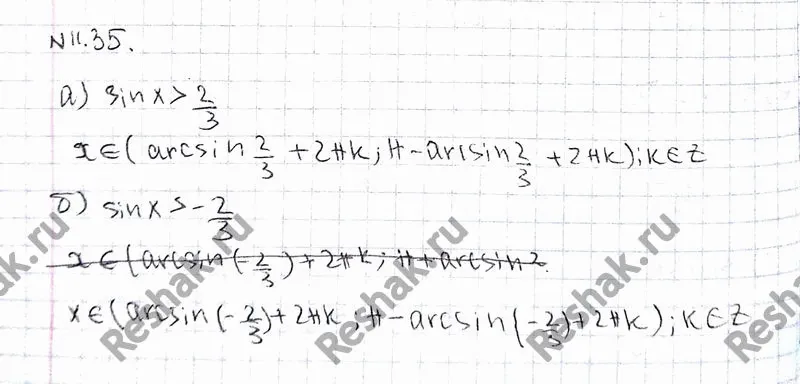 N 11.35.
а) sin x > 2/3
x ∈ (arcsin 2/3 + 2πk; π - arcsin 2/3 + 2πk); k ∈ Z
б) sin x > - 2/3
x ∈ (arcsin (-2/3) + 2πk; π + arcsin 2
x ∈ (arcsin (-2/3) + 2πk; π - arcsin (-2/3) + 2πk); k ∈ Z
Reshak.ru
Reshak.ru
Reshak.ru
Reshak.ru